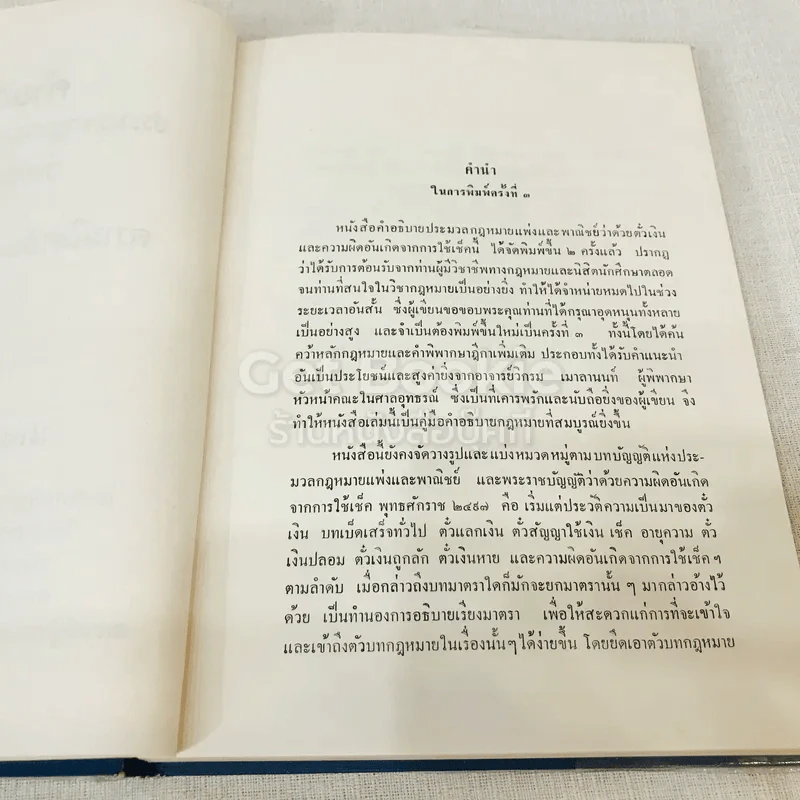 คำนำ
ในการพิมพ์ครั้งที่ ๓
หนังสือคำอธิบายประมวลกฎหมายแพ่งและพาณิชย์ว่าด้วยตั๋วเงิน
และความผิดอันเกิดจากการใช้เช็คนี้ ได้จัดพิมพ์ขึ้น ๒ ครั้งแล้ว ปรากฏ
ว่าได้รับการต้อนรับจากท่านผู้มีวิชาชีพทางกฎหมายและนิสิตนักศึกษาตลอด
จนท่านที่สนใจในวิชากฎหมายเป็นอย่างยิ่ง ทำให้ได้จำหน่ายหมดไปในช่วง
ระยะเวลาอันสั้น ซึ่งผู้เขียนขอขอบพระคุณท่านที่ได้กรุณาอุดหนุนทั้งหลาย
เป็นอย่างสูง และจำเป็นต้องพิมพ์ขึ้นใหม่เป็นครั้งที่ ๓ ทั้งนี้โดยได้ค้น
คว้าหลักกฎหมายและคำพิพากษาฎีกาเพิ่มเติม ประกอบทั้งได้รับคำแนะนำ
อันเป็นประโยชน์และสูงค่ายิ่งจากอาจารย์วิกรม เมาลานนท์ ผู้พิพากษา
หัวหน้าคณะในศาลอุทธรณ์ ซึ่งเป็นที่เคารพรักและนับถือยิ่งของผู้เขียน จึง
ทำให้หนังสือเล่มนี้เป็นคู่มือคำอธิบายกฎหมายที่สมบูรณ์ยิ่งขึ้น
หนังสือนี้ยังคงจัดวางรูปและแบ่งหมวดหมู่ตามบทบัญญัติแห่งประ-
มวลกฎหมายแพ่งและพาณิชย์ และพระราชบัญญัติว่าด้วยความผิดอันเกิด
จากการใช้เช็ค พุทธศักราช ๒๔๙๗ คือ เริ่มแต่ประวัติความเป็นมาของตั๋ว
เงิน บทเบ็ดเสร็จทั่วไป ตั๋วแลกเงิน ตั๋วสัญญาใช้เงิน เช็ค อายุความ ตั๋ว
เงินปลอม ตั๋วเงินถูกลัก ตั๋วเงินหาย และความผิดอันเกิดจากการใช้เช็ค ฯ
ตามลำดับ เมื่อกล่าวถึงบทมาตราใดก็มักจะยกมาตรานั้น ๆ มากล่าวอ้างไว้
ด้วย เป็นทำนองการอธิบายเรียงมาตรา เพื่อให้สะดวกแก่การที่จะเข้าใจ
และเข้าถึงตัวบทกฎหมายในเรื่องนั้น ๆ ได้ง่ายขึ้น โดยยึดเอาตัวบทกฎหมาย